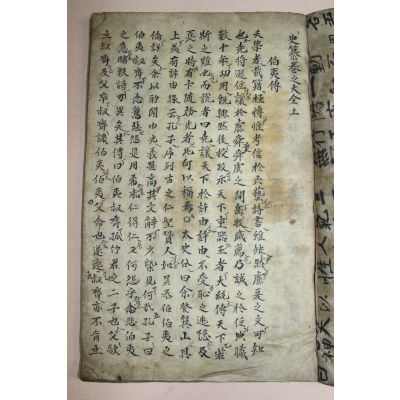 史纂卷之大全上
伯夷傳
夫學者載籍極博猶考信於六藝詩書雖缺然虞夏之文可知
也堯將遜位讓於虞舜舜禹之間岳牧咸薦乃試之於位典職
數十年功用旣興然後授政示天下重器王者大統傳天下若
斯之難也而說者曰堯讓天下於許由許由不受恥之逃隱及
夏之時有卞隨務光者此何以稱焉○太史公曰余登箕山其
上蓋有許由塚云孔子序列古之仁聖賢人如吳泰伯伯夷之
倫詳矣余以所聞由光義至高其文辭不少槩見何哉孔子曰
伯夷叔齊不念舊惡怨是用希求仁得仁又何怨乎余悲伯夷
之意睹軼詩可異矣其傳曰伯夷叔齊孤竹君之二子也父欲
立叔齊及父卒叔齊讓伯夷伯夷曰父命也遂逃叔齊亦不肯立